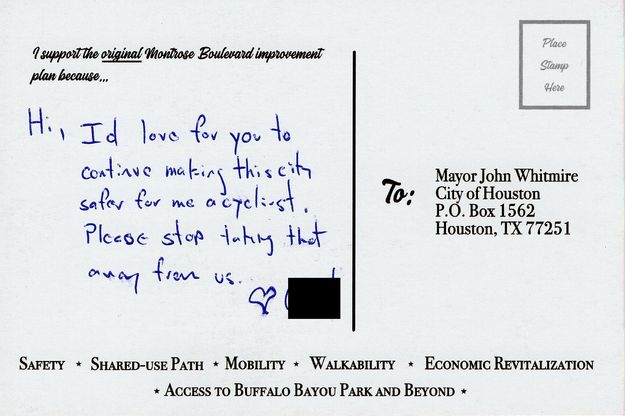 I support the original Montrose Boulevard improvement
plan because...
Hi, I'd love for you to
continue making this city
safer for me a cyclist.
Please stop taking that
away from us.
Place
Stamp
Here
To:
Mayor John Whitmire
City of Houston
P.O. Box 1562
Houston, TX 77251
SAFETY ⋆ SHARED-USE PATH ⋆ MOBILITY ⋆ WALKABILITY ⋆ ECONOMIC REVITALIZATION
⋆ ACCESS TO BUFFALO BAYOU PARK AND BEYOND ⋆